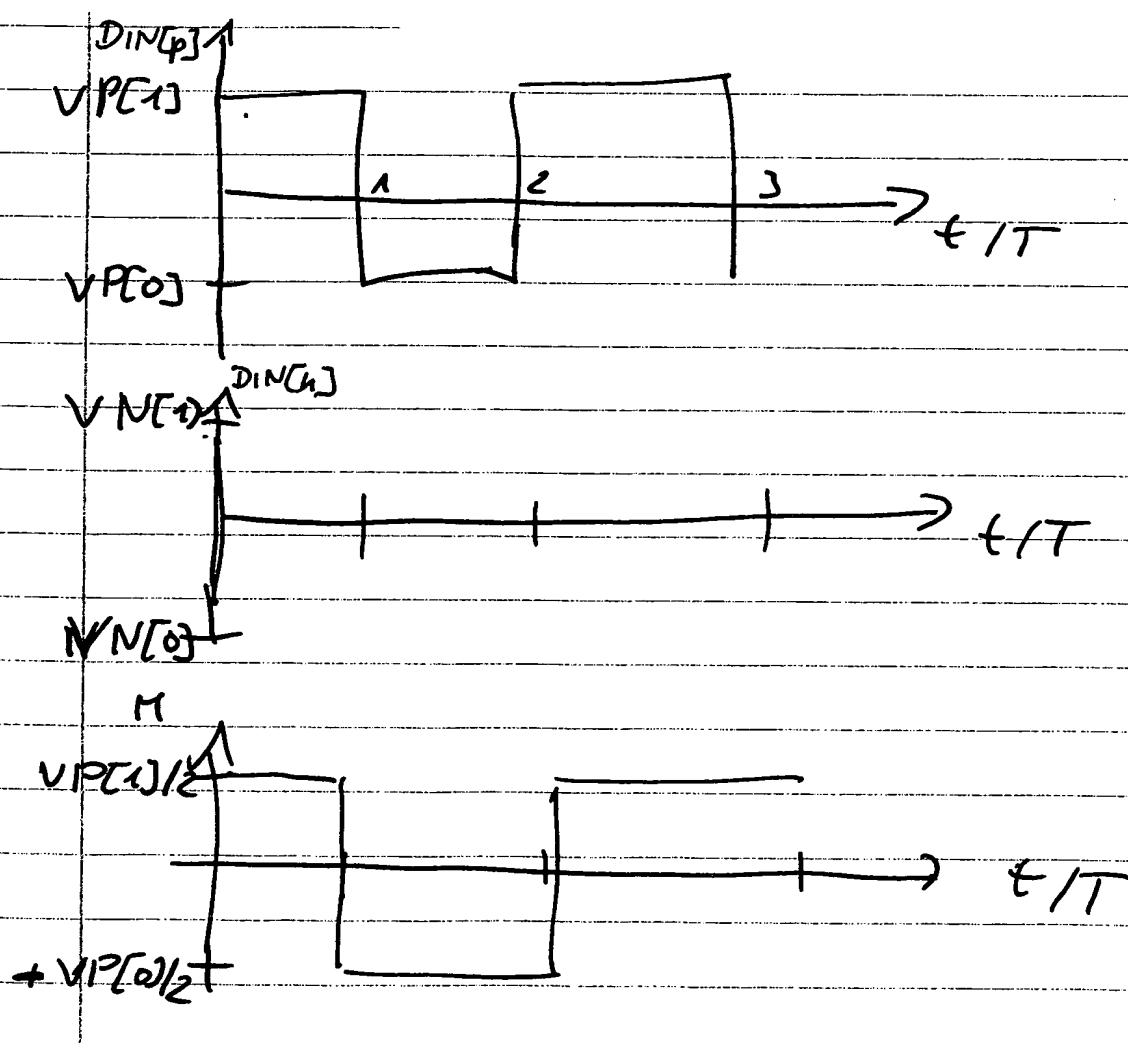 DIN[p]
VP[1]
1 2 3
t/T
VP[0]
DIN[n]
VN(1)
t/T
VN[0]
M
VP[1]/2
t/T
+ VP[0]/2